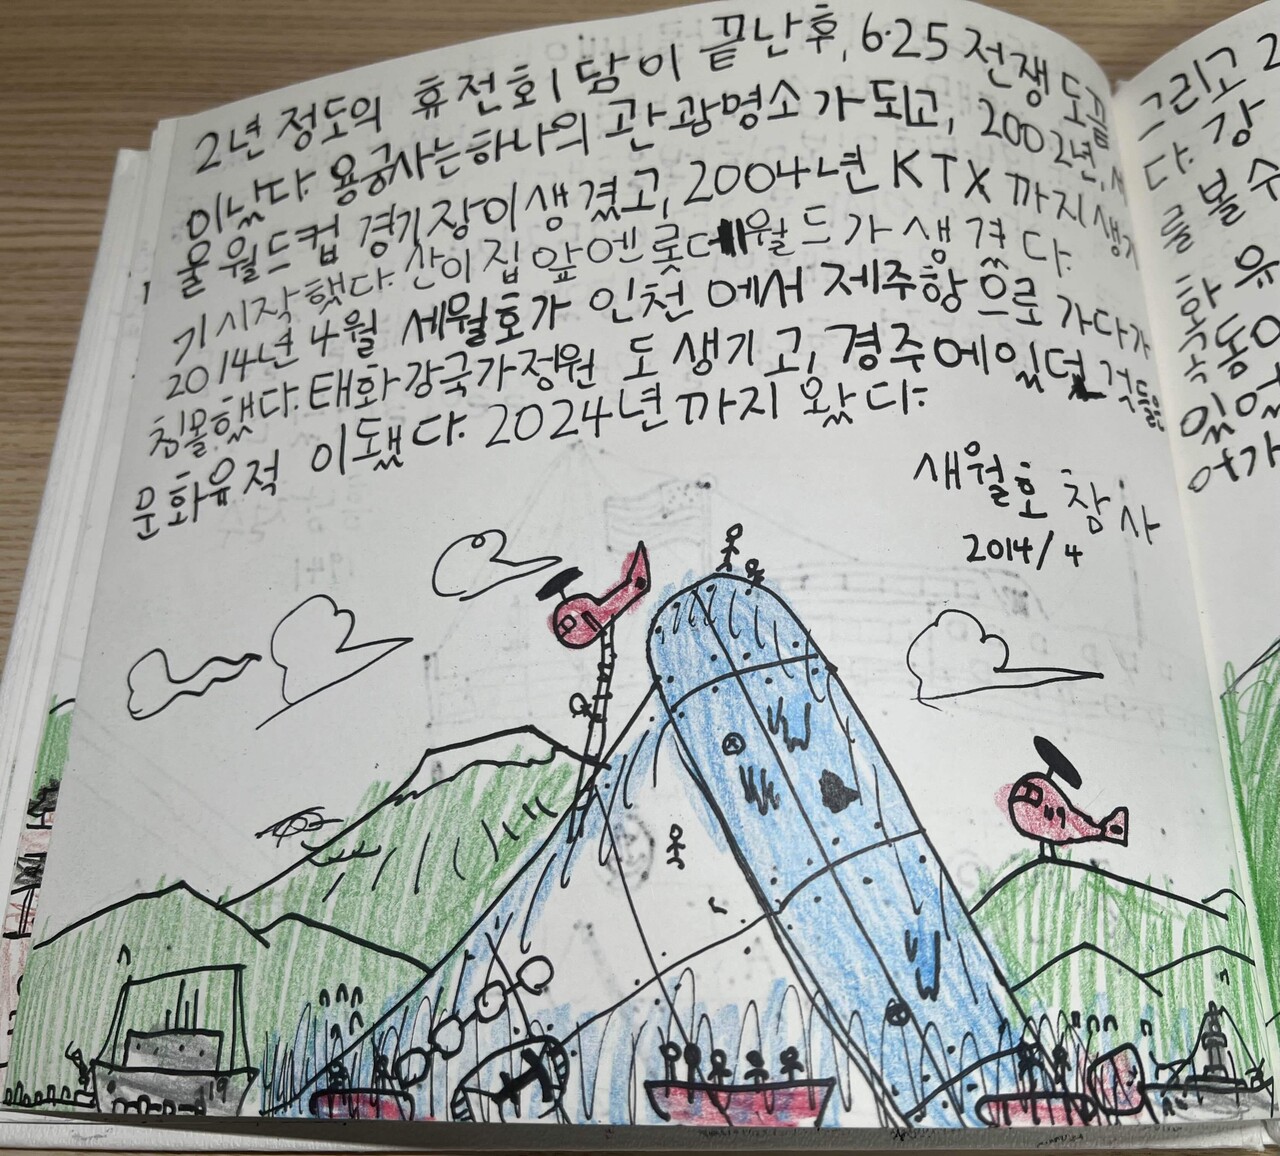 2년 정도의 휴전회담이 끝난후, 6·25 전쟁도끝
이났다. 용궁사는하나의 관광명소가 되고, 2002년, 서
울월드컵 경기장이 생겼고, 2004년 KTX 까지 생기
기 시작했다. 산이집 앞엔 롯데월드가 생겼다.
2014년 4월 세월호가 인천에서 제주항으로 가다가
침몰했다. 태화강국가정원도 생기고, 경주에있던 것들은
문화유적이됐다. 2024년까지 왔다.
새월호 참사
2014/4
그리고 2
다. 강
볼 수
를
화 유
속동
있었
여가